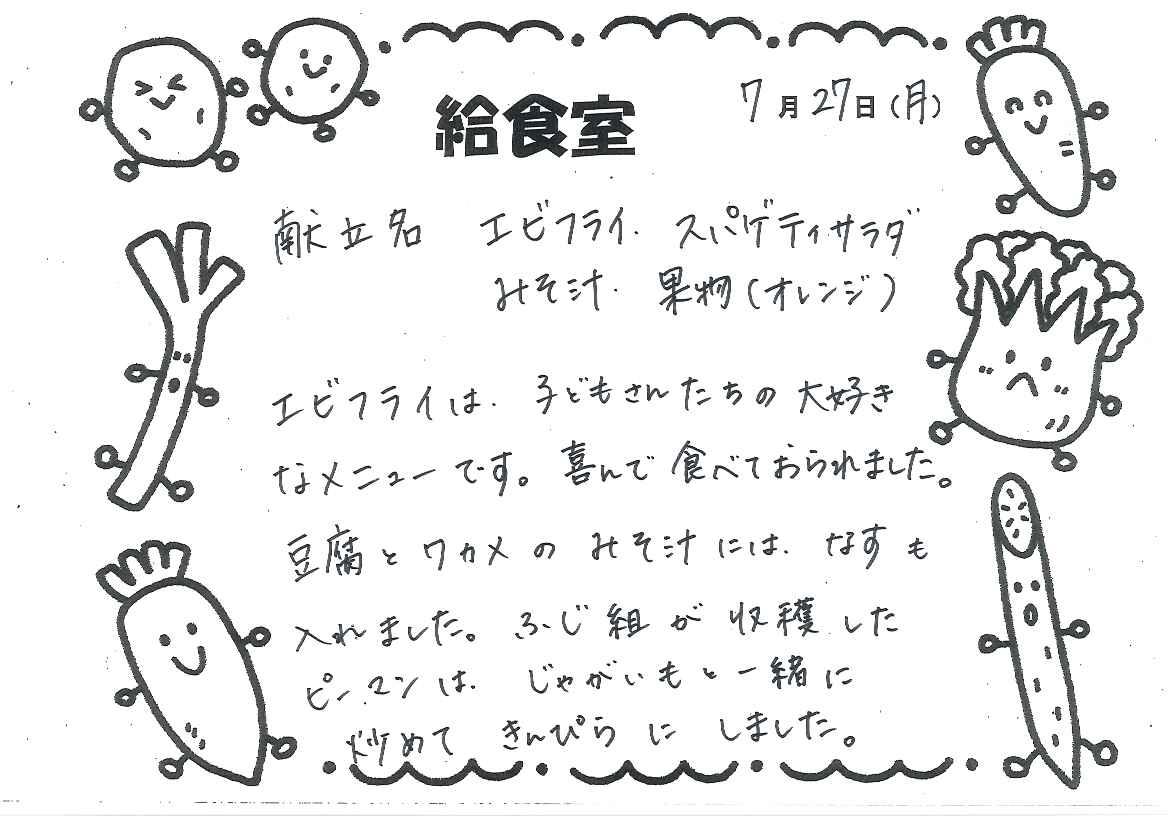 給食室
7月27日(月)
献立名 エビフライ. スパゲティサラダ
みそ汁. 果物(オレンジ)
エビフライは. 子どもさんたちの大好き
なメニューです。喜んで食べておられました。
豆腐とワカメのみそ汁には. なすも
入れました。ふじ組が収穫した
ピーマンは. じゃがいもと一緒に
炒めて きんぴらにしました。